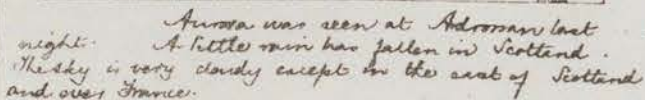 Aurora was seen at Adrossan last
night. A little rain has fallen in Scotland.
The sky is very cloudy except in the east of Scotland
and over France.